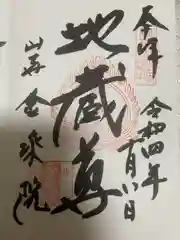 奉拝
令和四年
十月八日
地蔵尊
金乗院